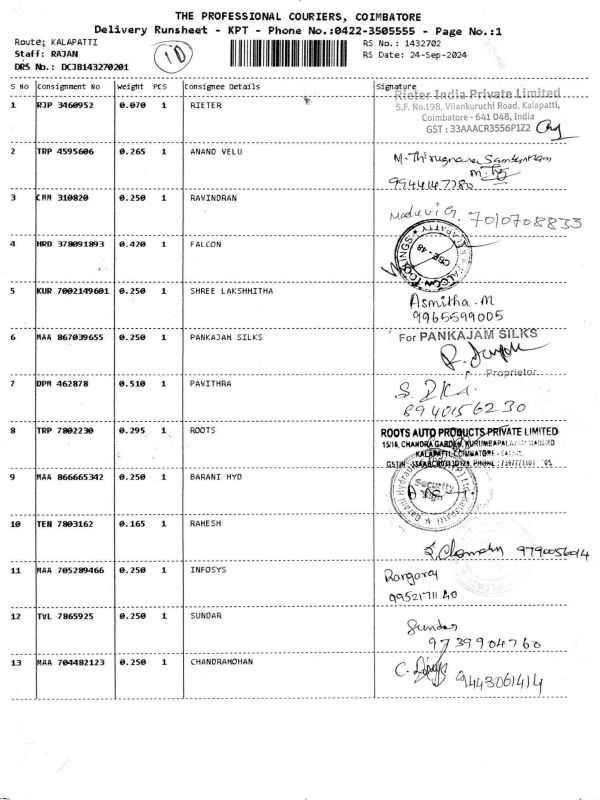 THE PROFESSIONAL COURIERS, COIMBATORE
Delivery Runsheet - KPT - Phone No.:0422-3505555 - Page No.:1
Route: KALAPATTI
RS No.: 1432702
Staff: RAJAN
10
RS Date: 24-Sep-2024
DRS No.: DCJB143270201
S No Consignment No Weight PCS Consignee Details Signature
1 RJP 3460952 0.070 1 RIETER
Rieter India Private Limited
S.F. No.198, Vilankuruchi Road, Kalapatti,
Coimbatore - 641 048, India
GST : 33AAACR3556P1Z2
2 TRP 4595606 0.265 1 ANAND VELU
M. Thirugnana Sambantham
9944147280
3 CMM 310820 0.250 1 RAVINDRAN
7010708833
4 HRD 378091893 0.420 1 FALCON
FALCON TOOLINGS KALAPATTY
CBE - 48
5 KUR 7002149601 0.250 1 SHREE LAKSHMITHA
Asmitha.M
9965599005
6 MAA 867039655 0.250 1 PANKAJAM SILKS
For PANKAJAM SILKS
Proprietor
7 DPM 462878 0.510 1 PAVITHRA
8940156230
8 TRP 7802230 0.295 1 ROOTS
ROOTS AUTO PRODUCTS PRIVATE LIMITED
15/16, CHANDRA GARDEN, KURUMBAPALAYAM MAIN RD
KALAPATTI, COIMBATORE
9 MAA 866665342 0.250 1 BARANI HYD
Security
10 TEN 7803162 0.165 1 RAMESH
9790056014
11 MAA 705289466 0.250 1 INFOSYS
Rangaraj
9952171140
12 TVL 7865925 0.250 1 SUNDAR
Sundar
9739904760
13 MAA 704482123 0.250 1 CHANDRAMOHAN
9443061414